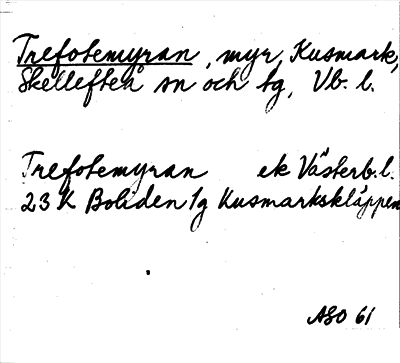 Trefotemyran, myr, Kusmark,
Skellefteå sn och tg, Vb. l.
Trefotemyran ek Västerb.l.
23 K Boliden 1g Kusmarkskläppen
ASO 61